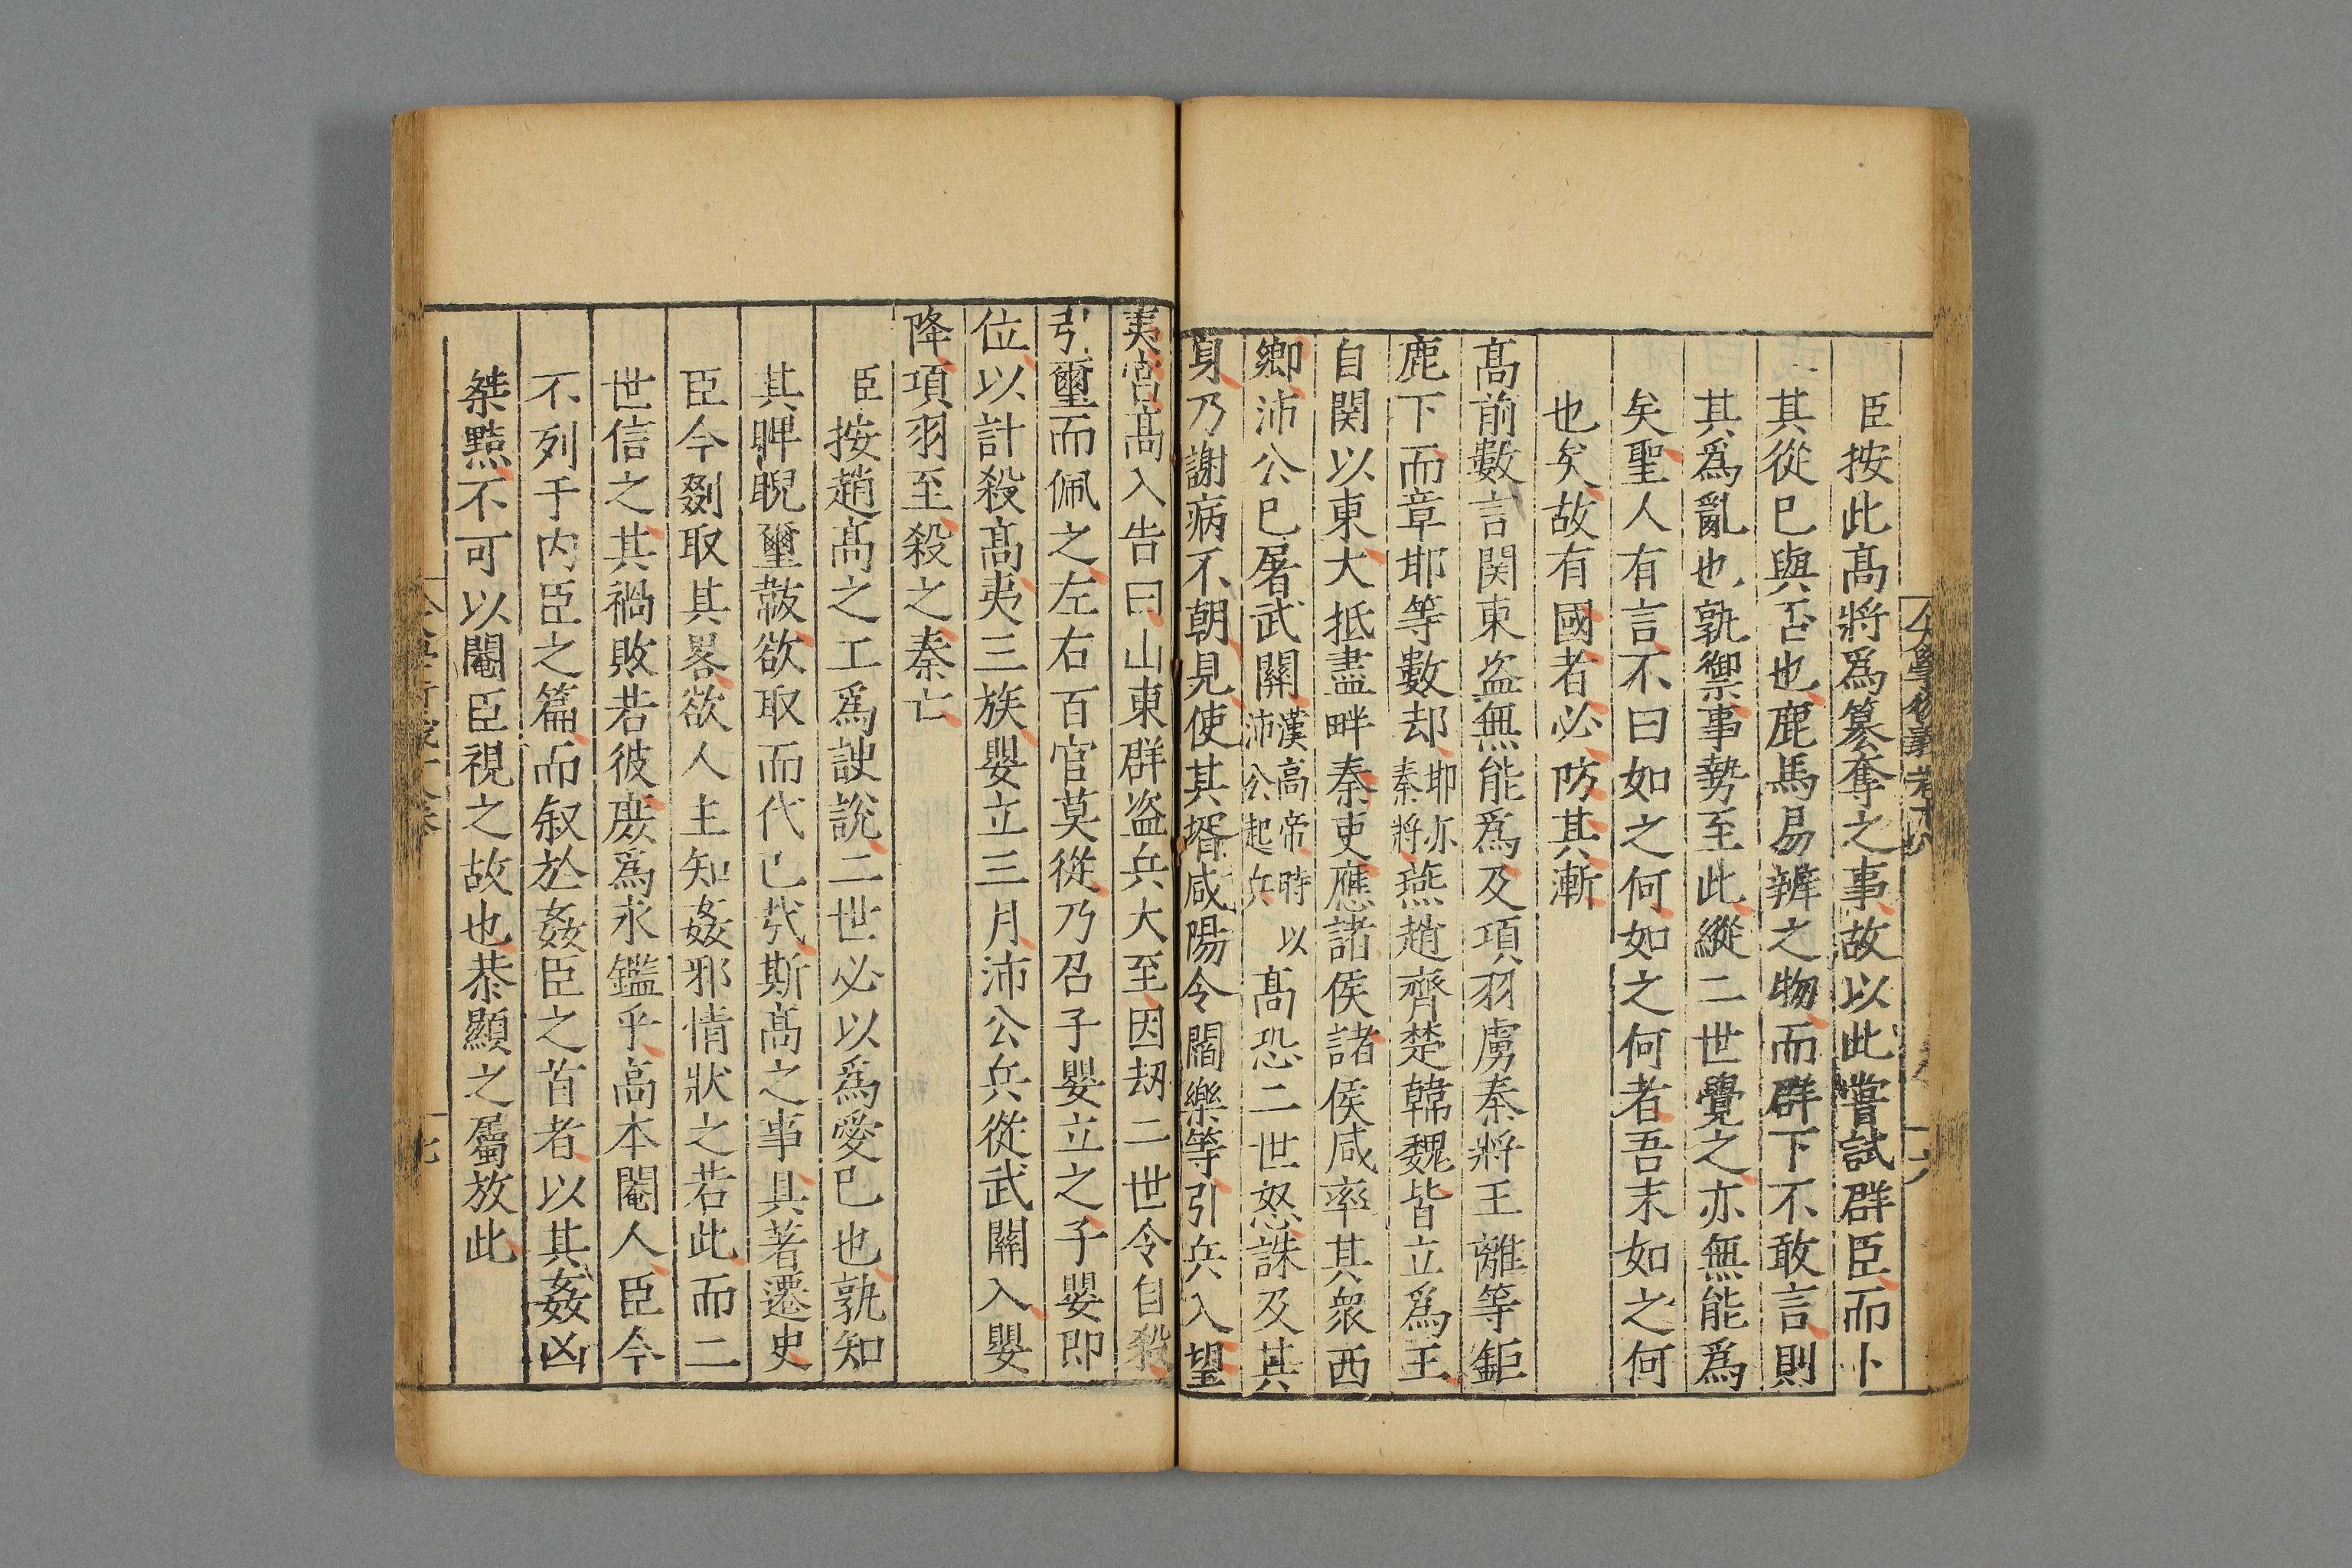 大學衍義卷十八
臣按此高將爲篡奪之事故以此嘗試群臣而卜
其從已與否也鹿馬易辨之物而群下不敢言則
其爲亂也孰禦事勢至此縱二世覺之亦無能爲
矣聖人有言不曰如之何如之何者吾末如之何
也矣故有國者必防其漸
高前數言関東盗無能爲及項羽虜秦將王離等鉅
鹿下而章邯等數却邯亦秦將燕趙齊楚韓魏皆立爲王
自関以東大抵盡畔秦吏應諸侯諸侯咸率其衆西
鄉沛公已屠武關漢高帝時以沛公起兵高恐二世怒誅及其
身乃謝病不朝見使其壻咸陽令閻樂等引兵入望
夷宮高入告曰山東群盗兵大至因刼二世令自殺
引璽而佩之左右百官莫從乃召子嬰立之子嬰即
位以計殺高夷三族嬰立三月沛公兵從武關入嬰
降項羽至殺之秦亡
臣按趙高之工爲諛說二世必以爲愛已也孰知
其睥睨璽韍欲取而代已㢤斯高之事具著遷史
臣今剟取其畧欲人主知姦邪情狀之若此而二
世信之其禍敗若彼庻爲永鑑乎高本閹人臣今
不列于内臣之篇而叙於姦臣之首者以其姦凶
桀黠不可以閹臣視之故也恭顯之屬放此